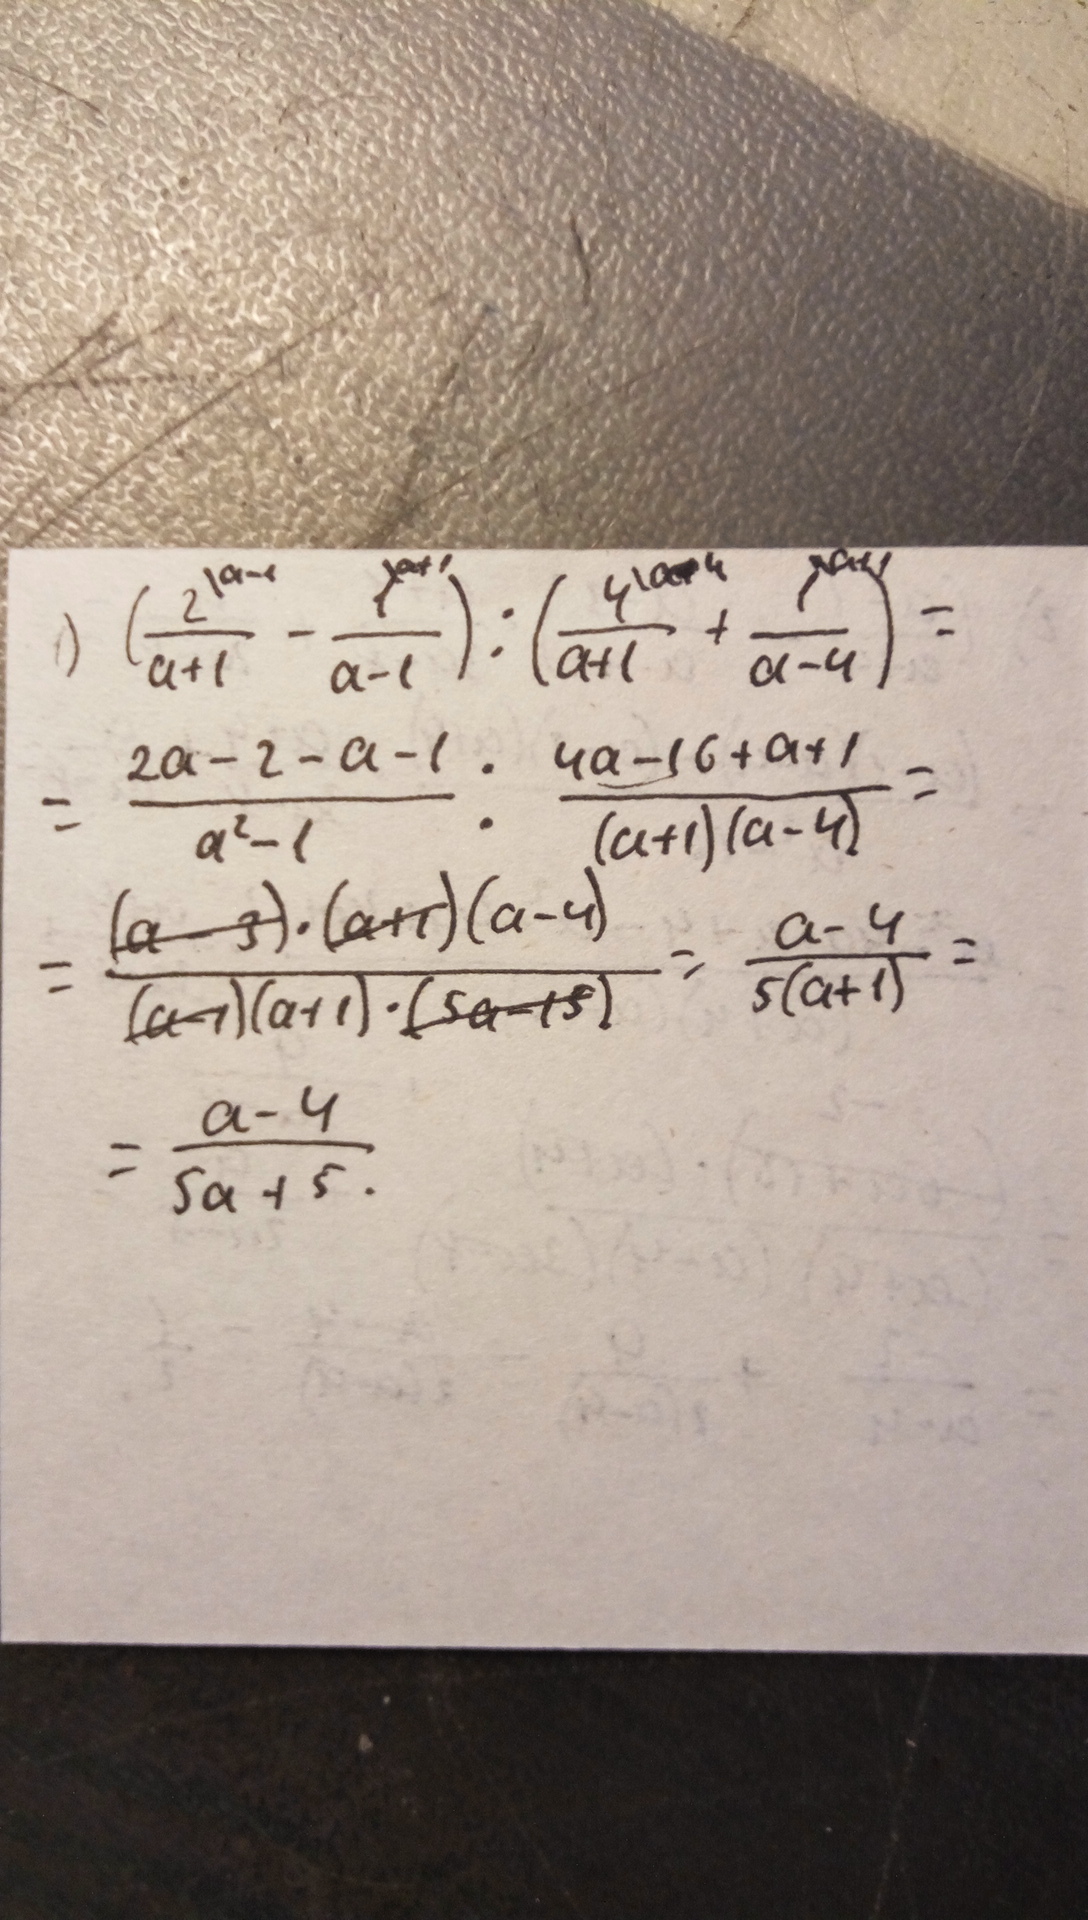 1) (2\a-1/(a+1) - 1\a+1/(a-1)) : (4\a-4/(a+1) + 1\a+1/(a-4)) =
= (2a-2-a-1)/(a²-1) : (4a-16+a+1)/((a+1)(a-4)) =
= ((a-3)·(a+1)(a-4))/((a-1)(a+1)·(5a-15)) = (a-4)/(5(a+1)) =
= (a-4)/(5a+5).